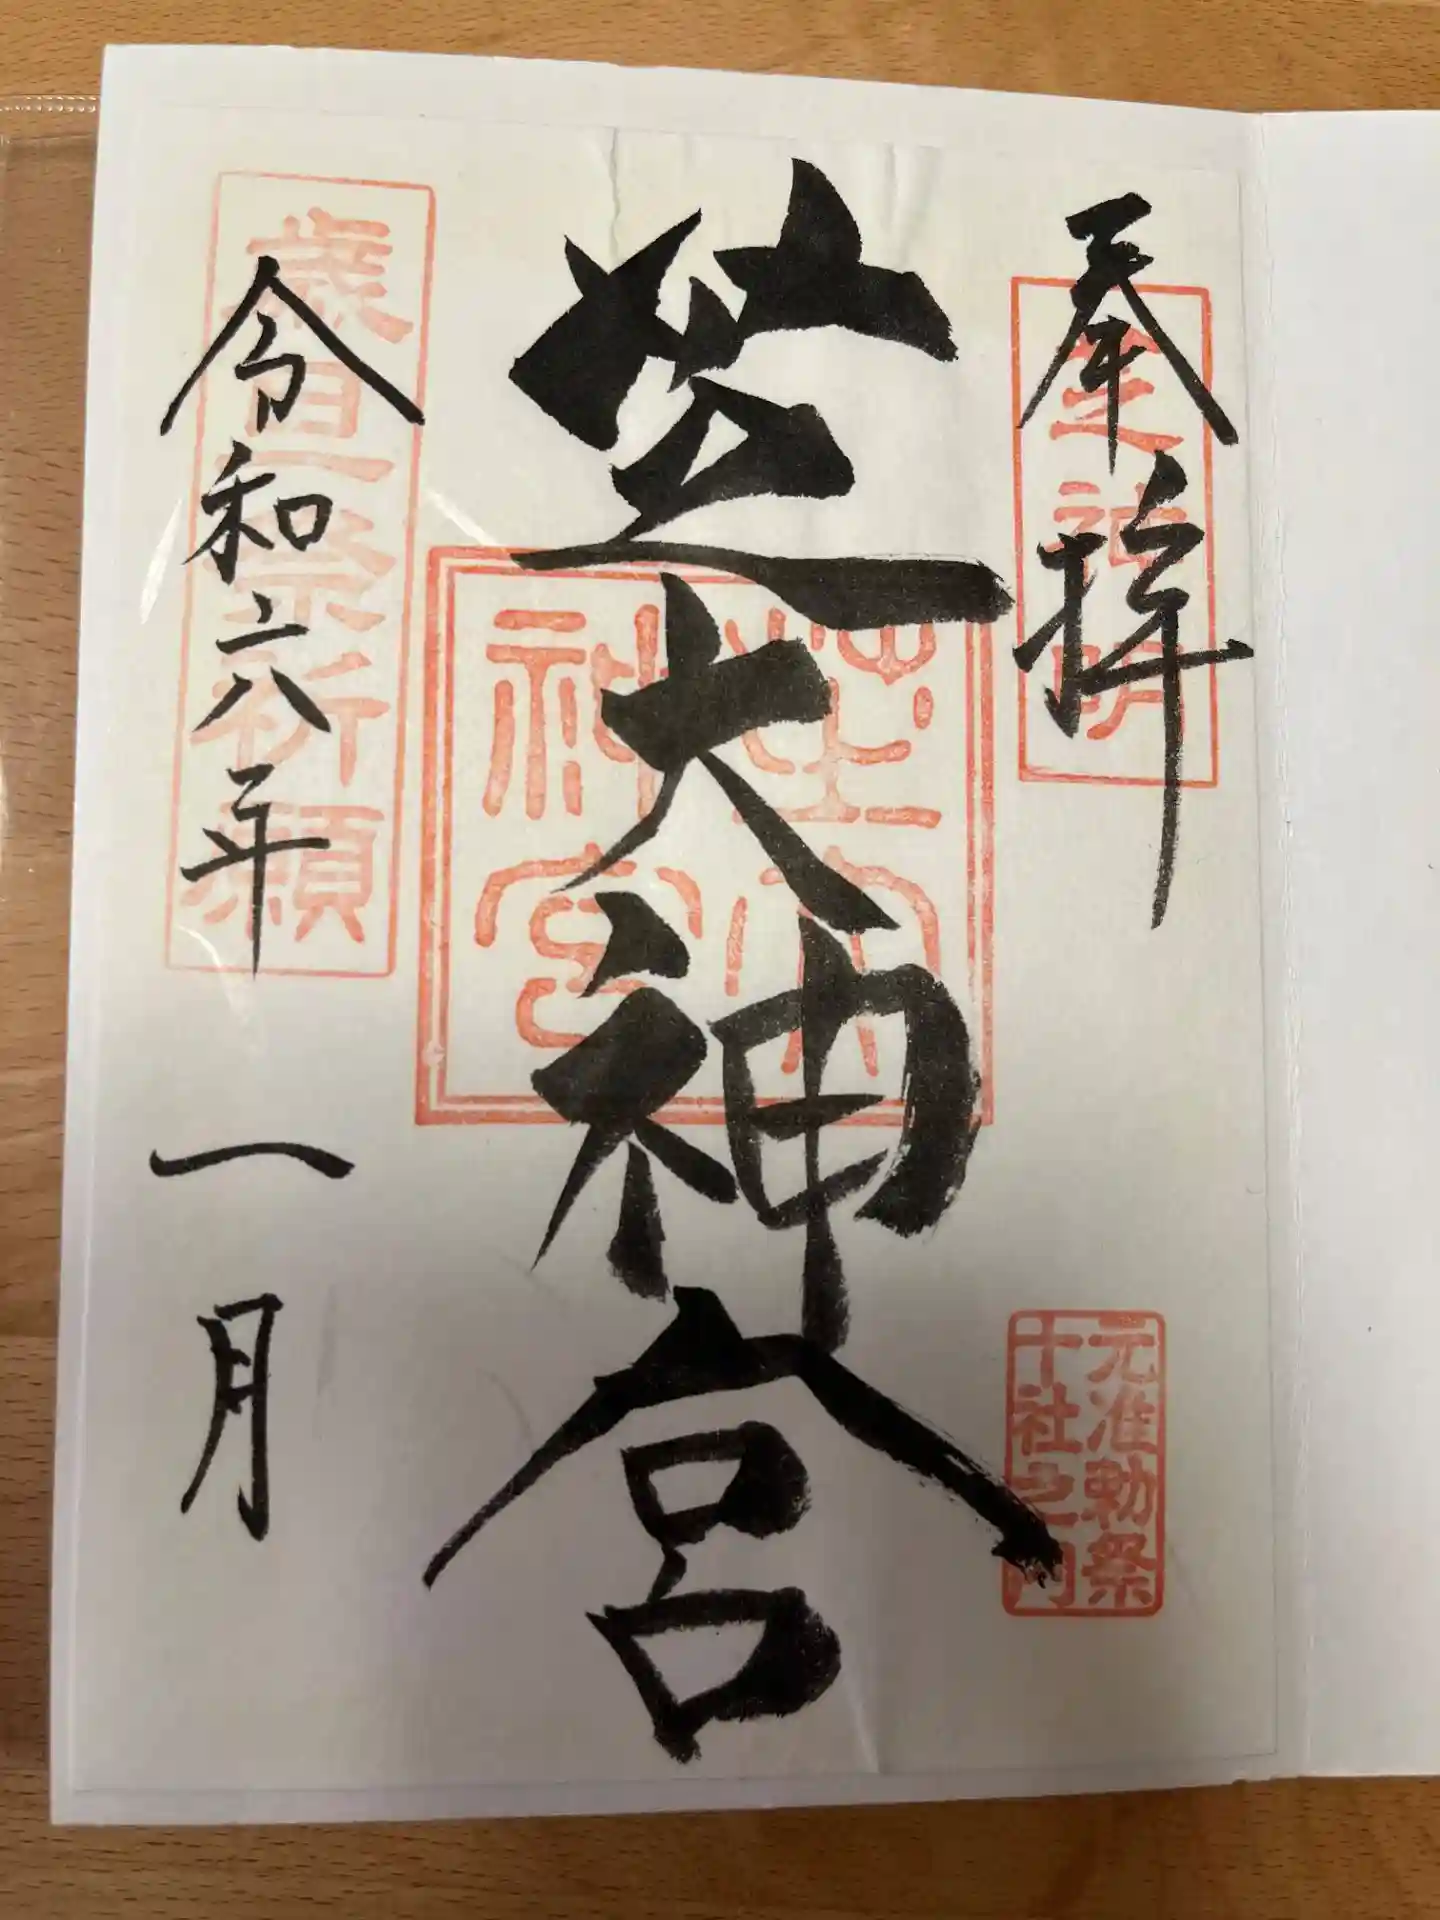 奉拝
芝神明
元准勅祭
十社之内
芝大神宮
芝大
神宮
令和六年一月
歳旦祭祈願